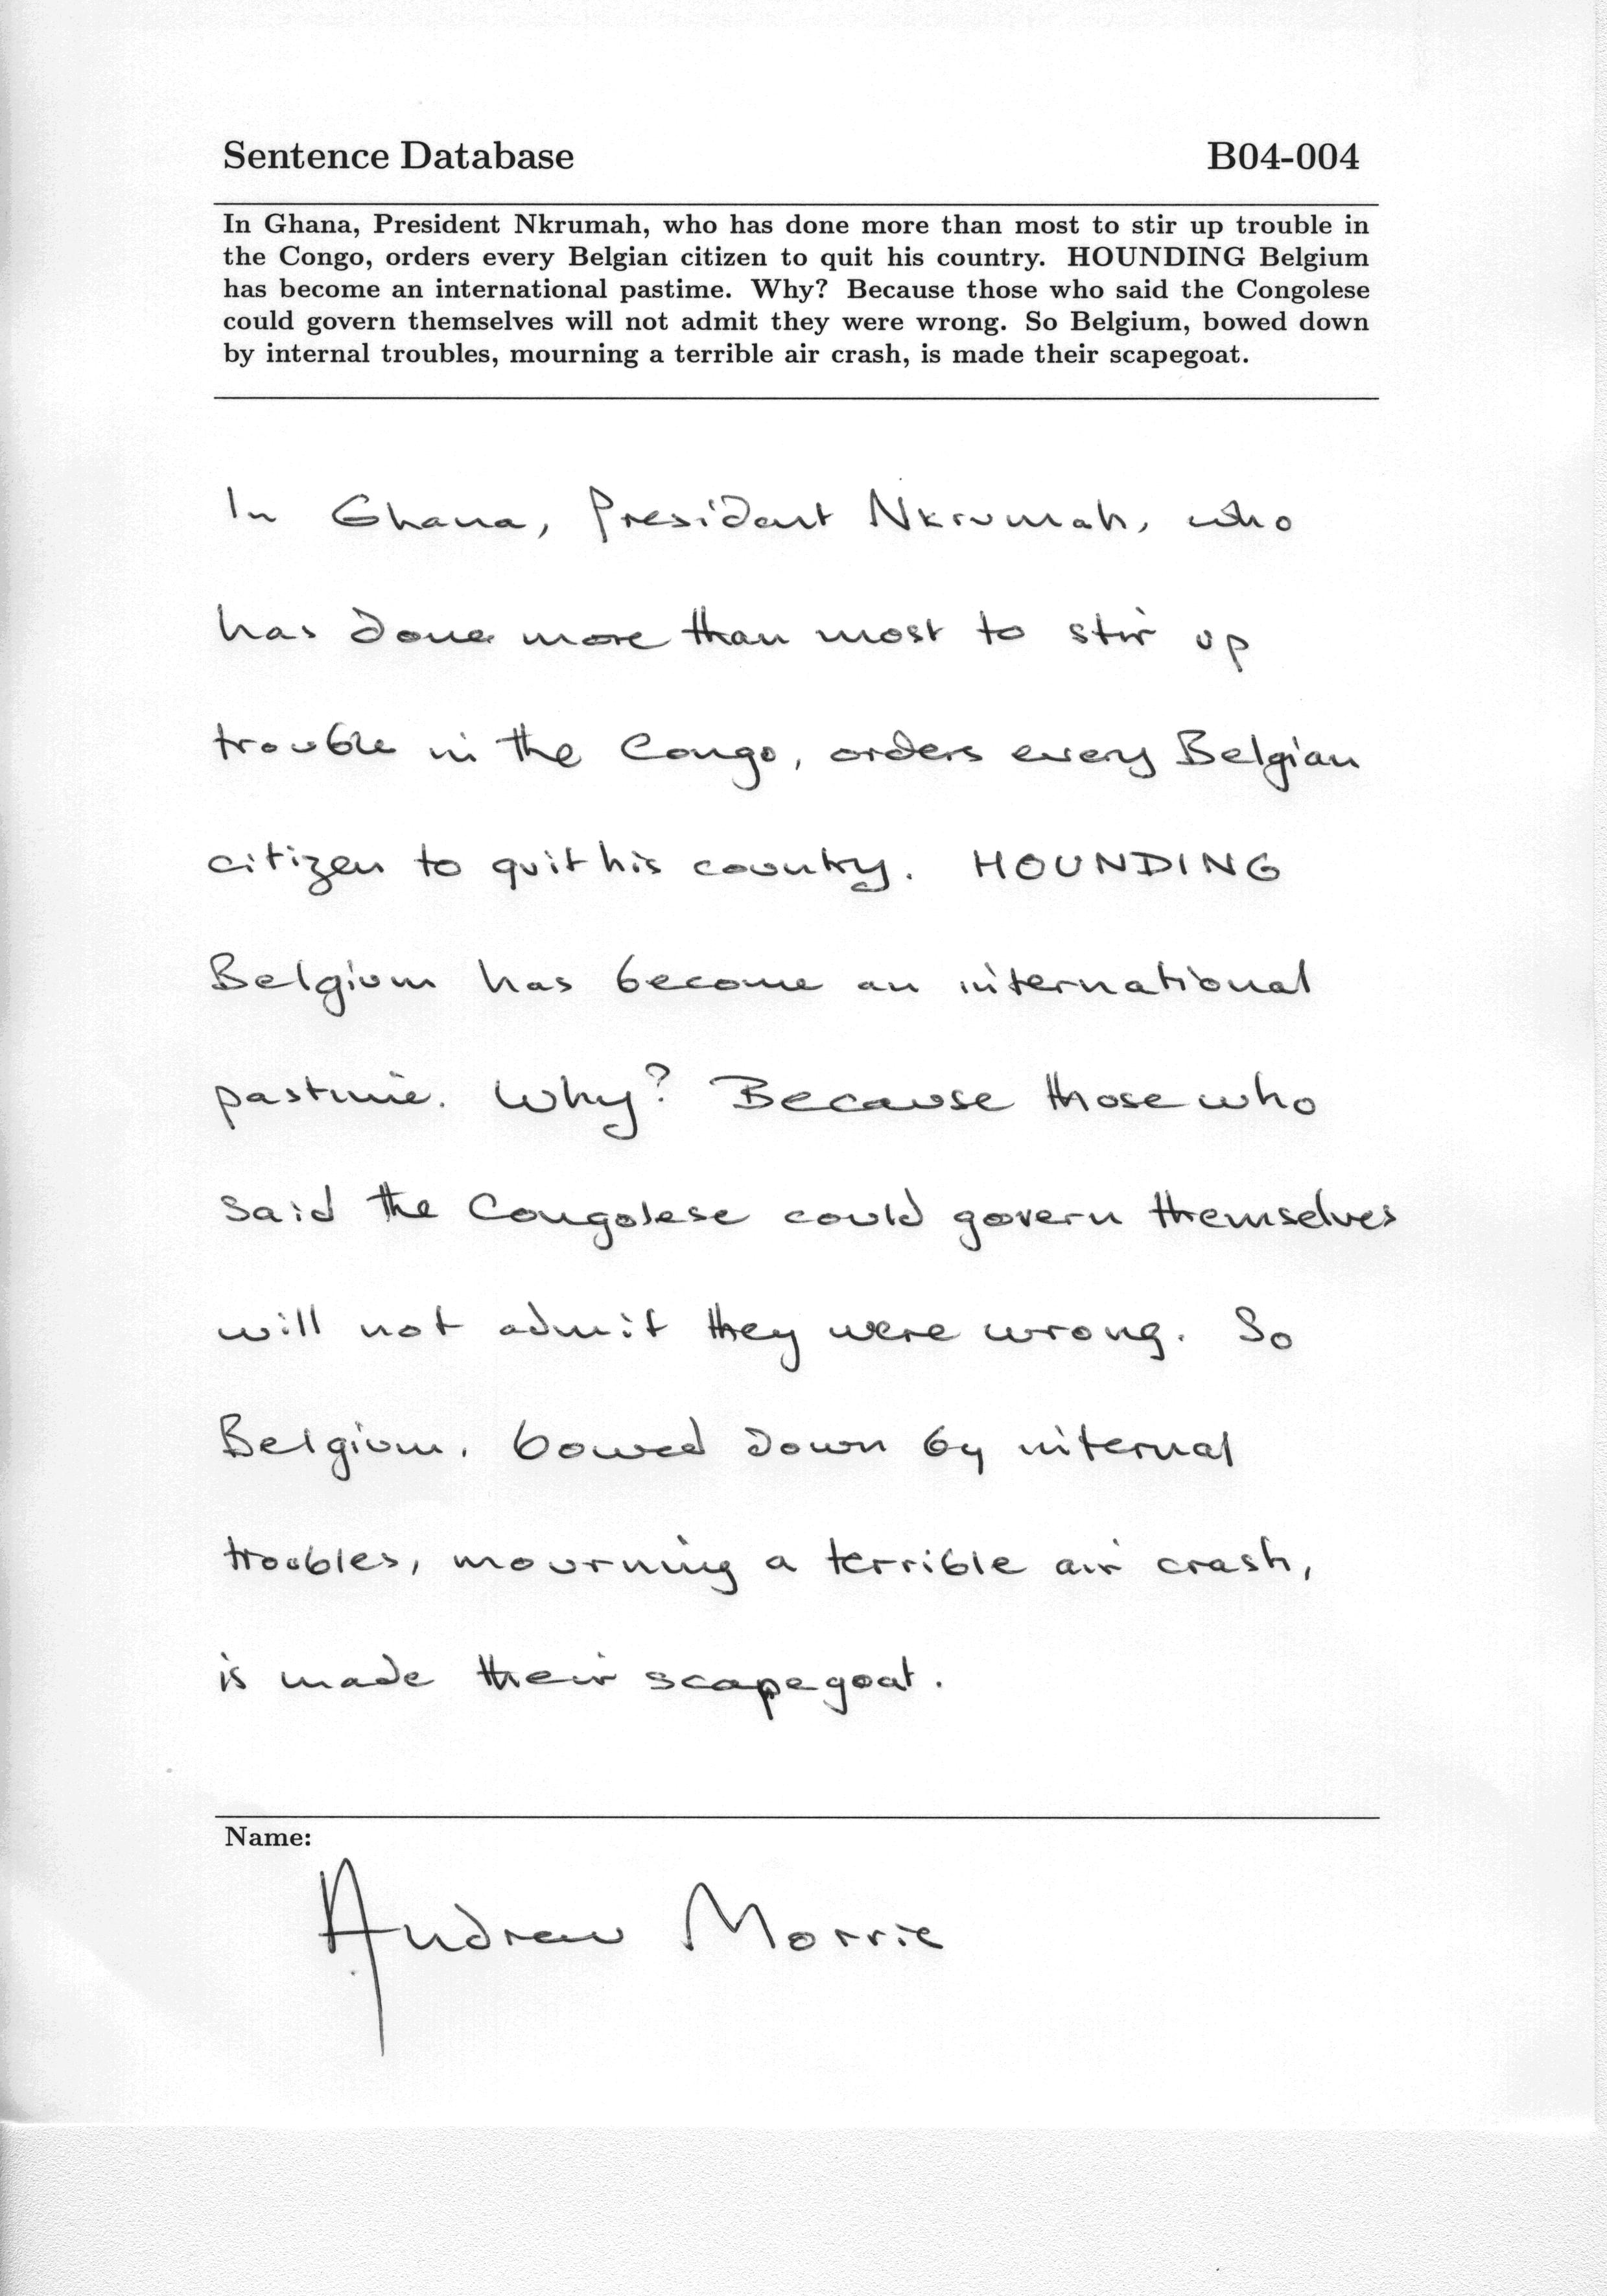 Sentence Database B04-004
In Ghana, President Nkrumah, who has done more than most to stir up trouble in
the Congo, orders every Belgian citizen to quit his country. HOUNDING Belgium
has become an international pastime. Why? Because those who said the Congolese
could govern themselves will not admit they were wrong. So Belgium, bowed down
by internal troubles, mourning a terrible air crash, is made their scapegoat.
In Ghana, President Nkrumah, who
has done more than most to stir up
trouble in the Congo, orders every Belgian
citizen to quit his country. HOUNDING
Belgium has become an international
pastime. Why? Because those who
said the Congolese could govern themselves
will not admit they were wrong. So
Belgium, bowed down by internal
troubles, mourning a terrible air crash,
is made their scapegoat.
Name:
Andrew Morris